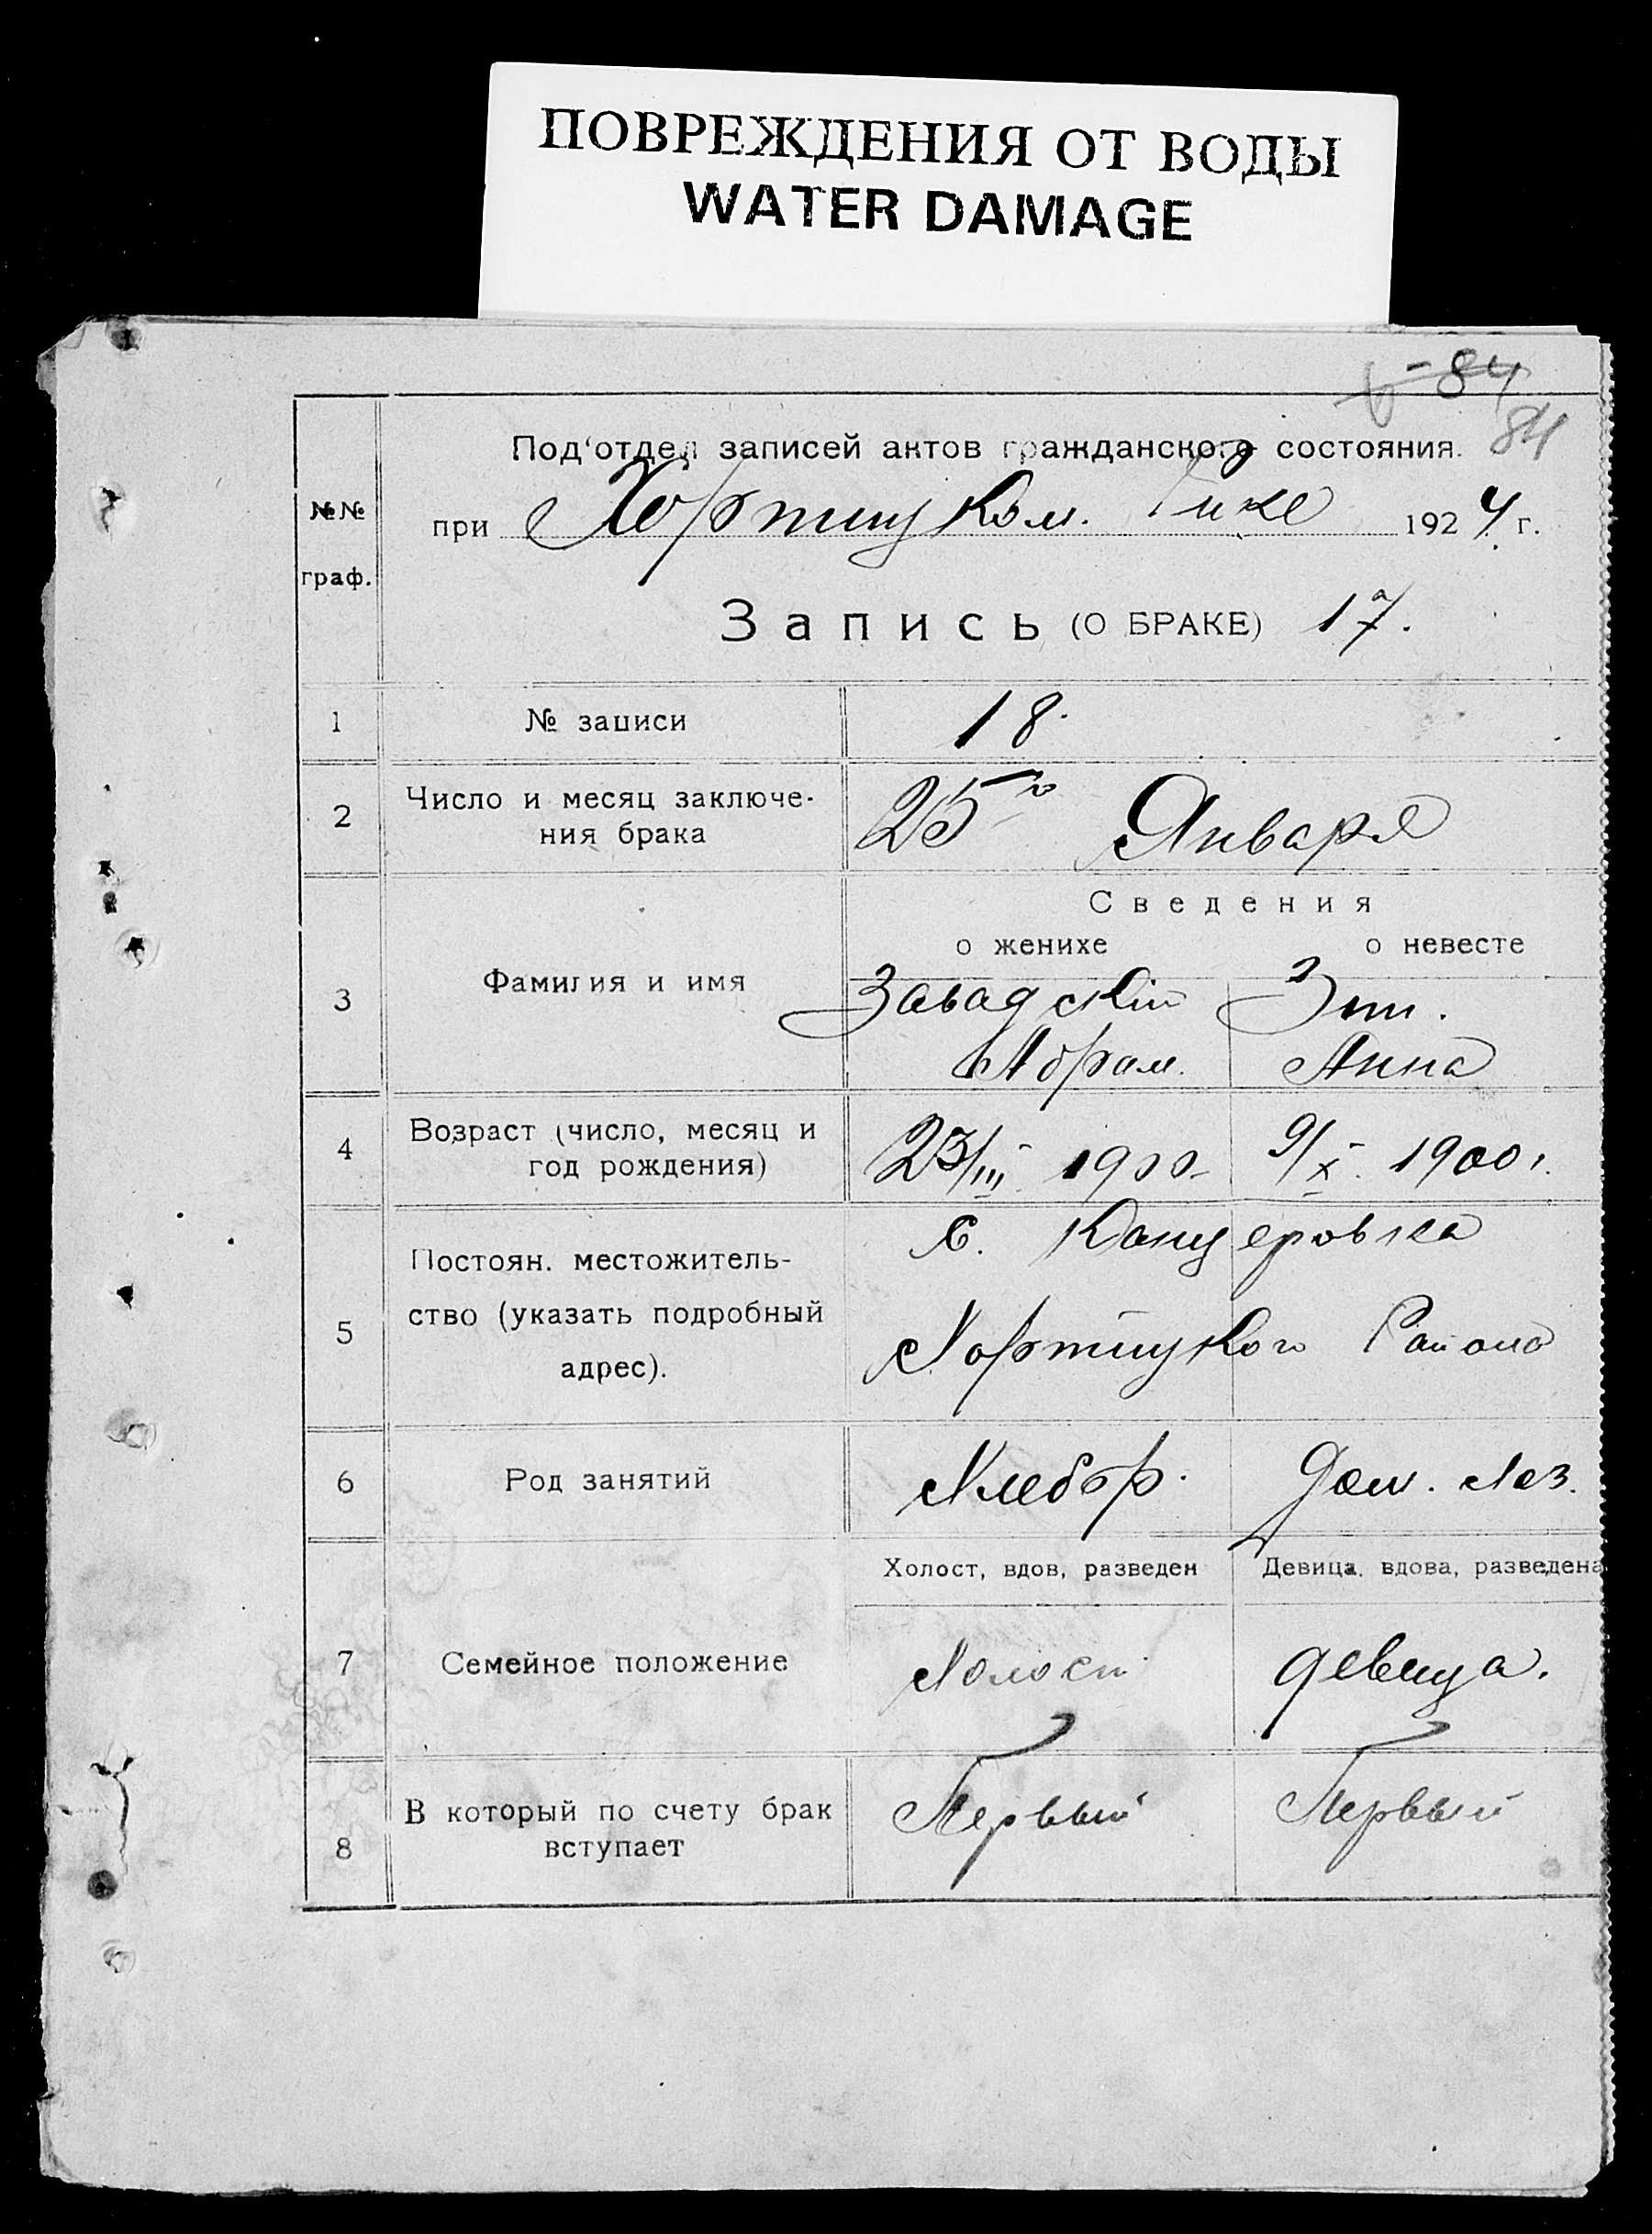 ПОВРЕЖДЕНИЯ ОТ ВОДЫ
WATER DAMAGE
84
84
Под'отдел записей актов гражданского состояния.
№№ граф.
при Хортицком. Рике 1924 г.
Запись (О БРАКЕ) 17.
1 № записи 18.
2 Число и месяц заключе-
ния брака 25го Января
Сведения
о женихе о невесте
3 Фамилия и имя Завадскій
Абрам. Анна
4 Возраст (число, месяц и
год рождения) 23/III 1900 9/X. 1900 г.
5 Постоян. местожитель-
ство (указать подробный
адрес).
с. Канцеровка
Хортицкого Района
6 Род занятий Хлебор. Дом. хоз.
Холост, вдов, разведен Девица, вдова, разведена
7 Семейное положение Холост девица.
8 В который по счету брак
вступает Первый Первый